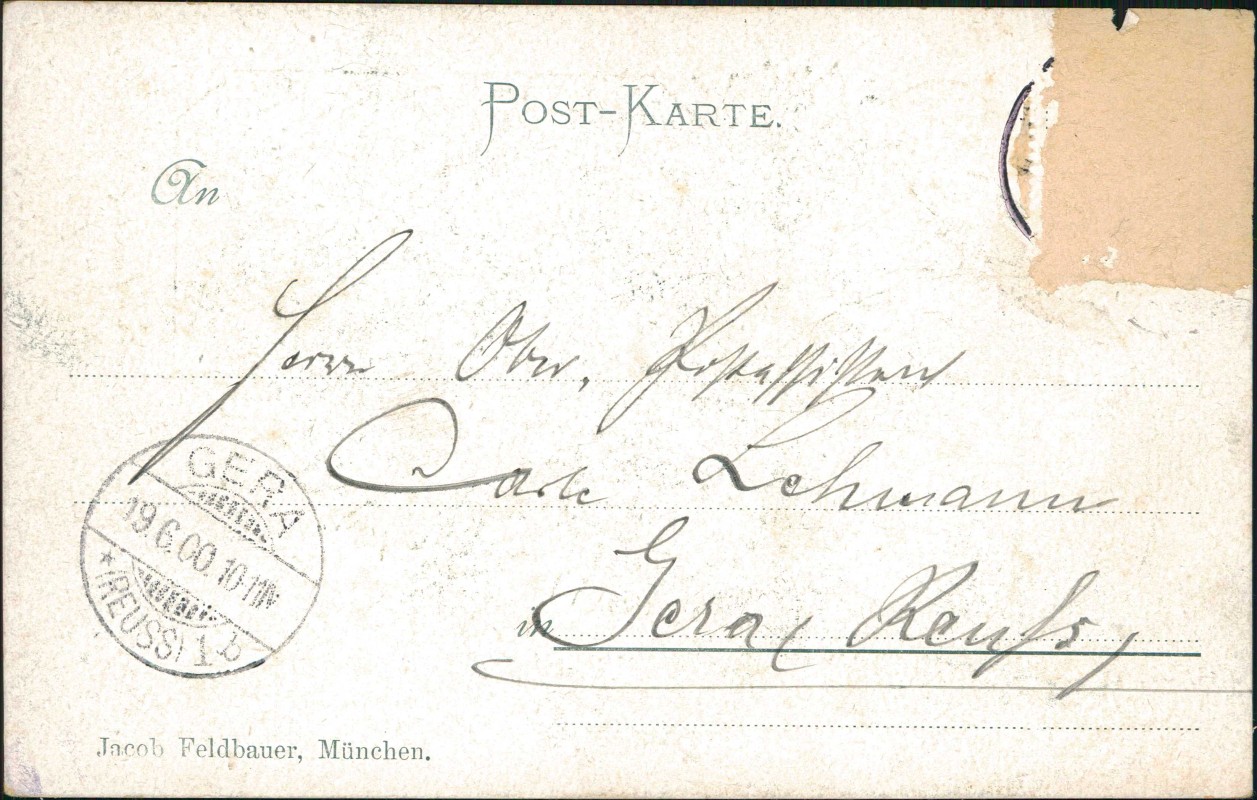 POST-KARTE.
An
Herrn Ober. Postassistent
Carl Lehmann
in Gera (Reuß)
GERA
19.6.00.10-11N
* (REUSS) 1 b
Jacob Feldbauer, München.